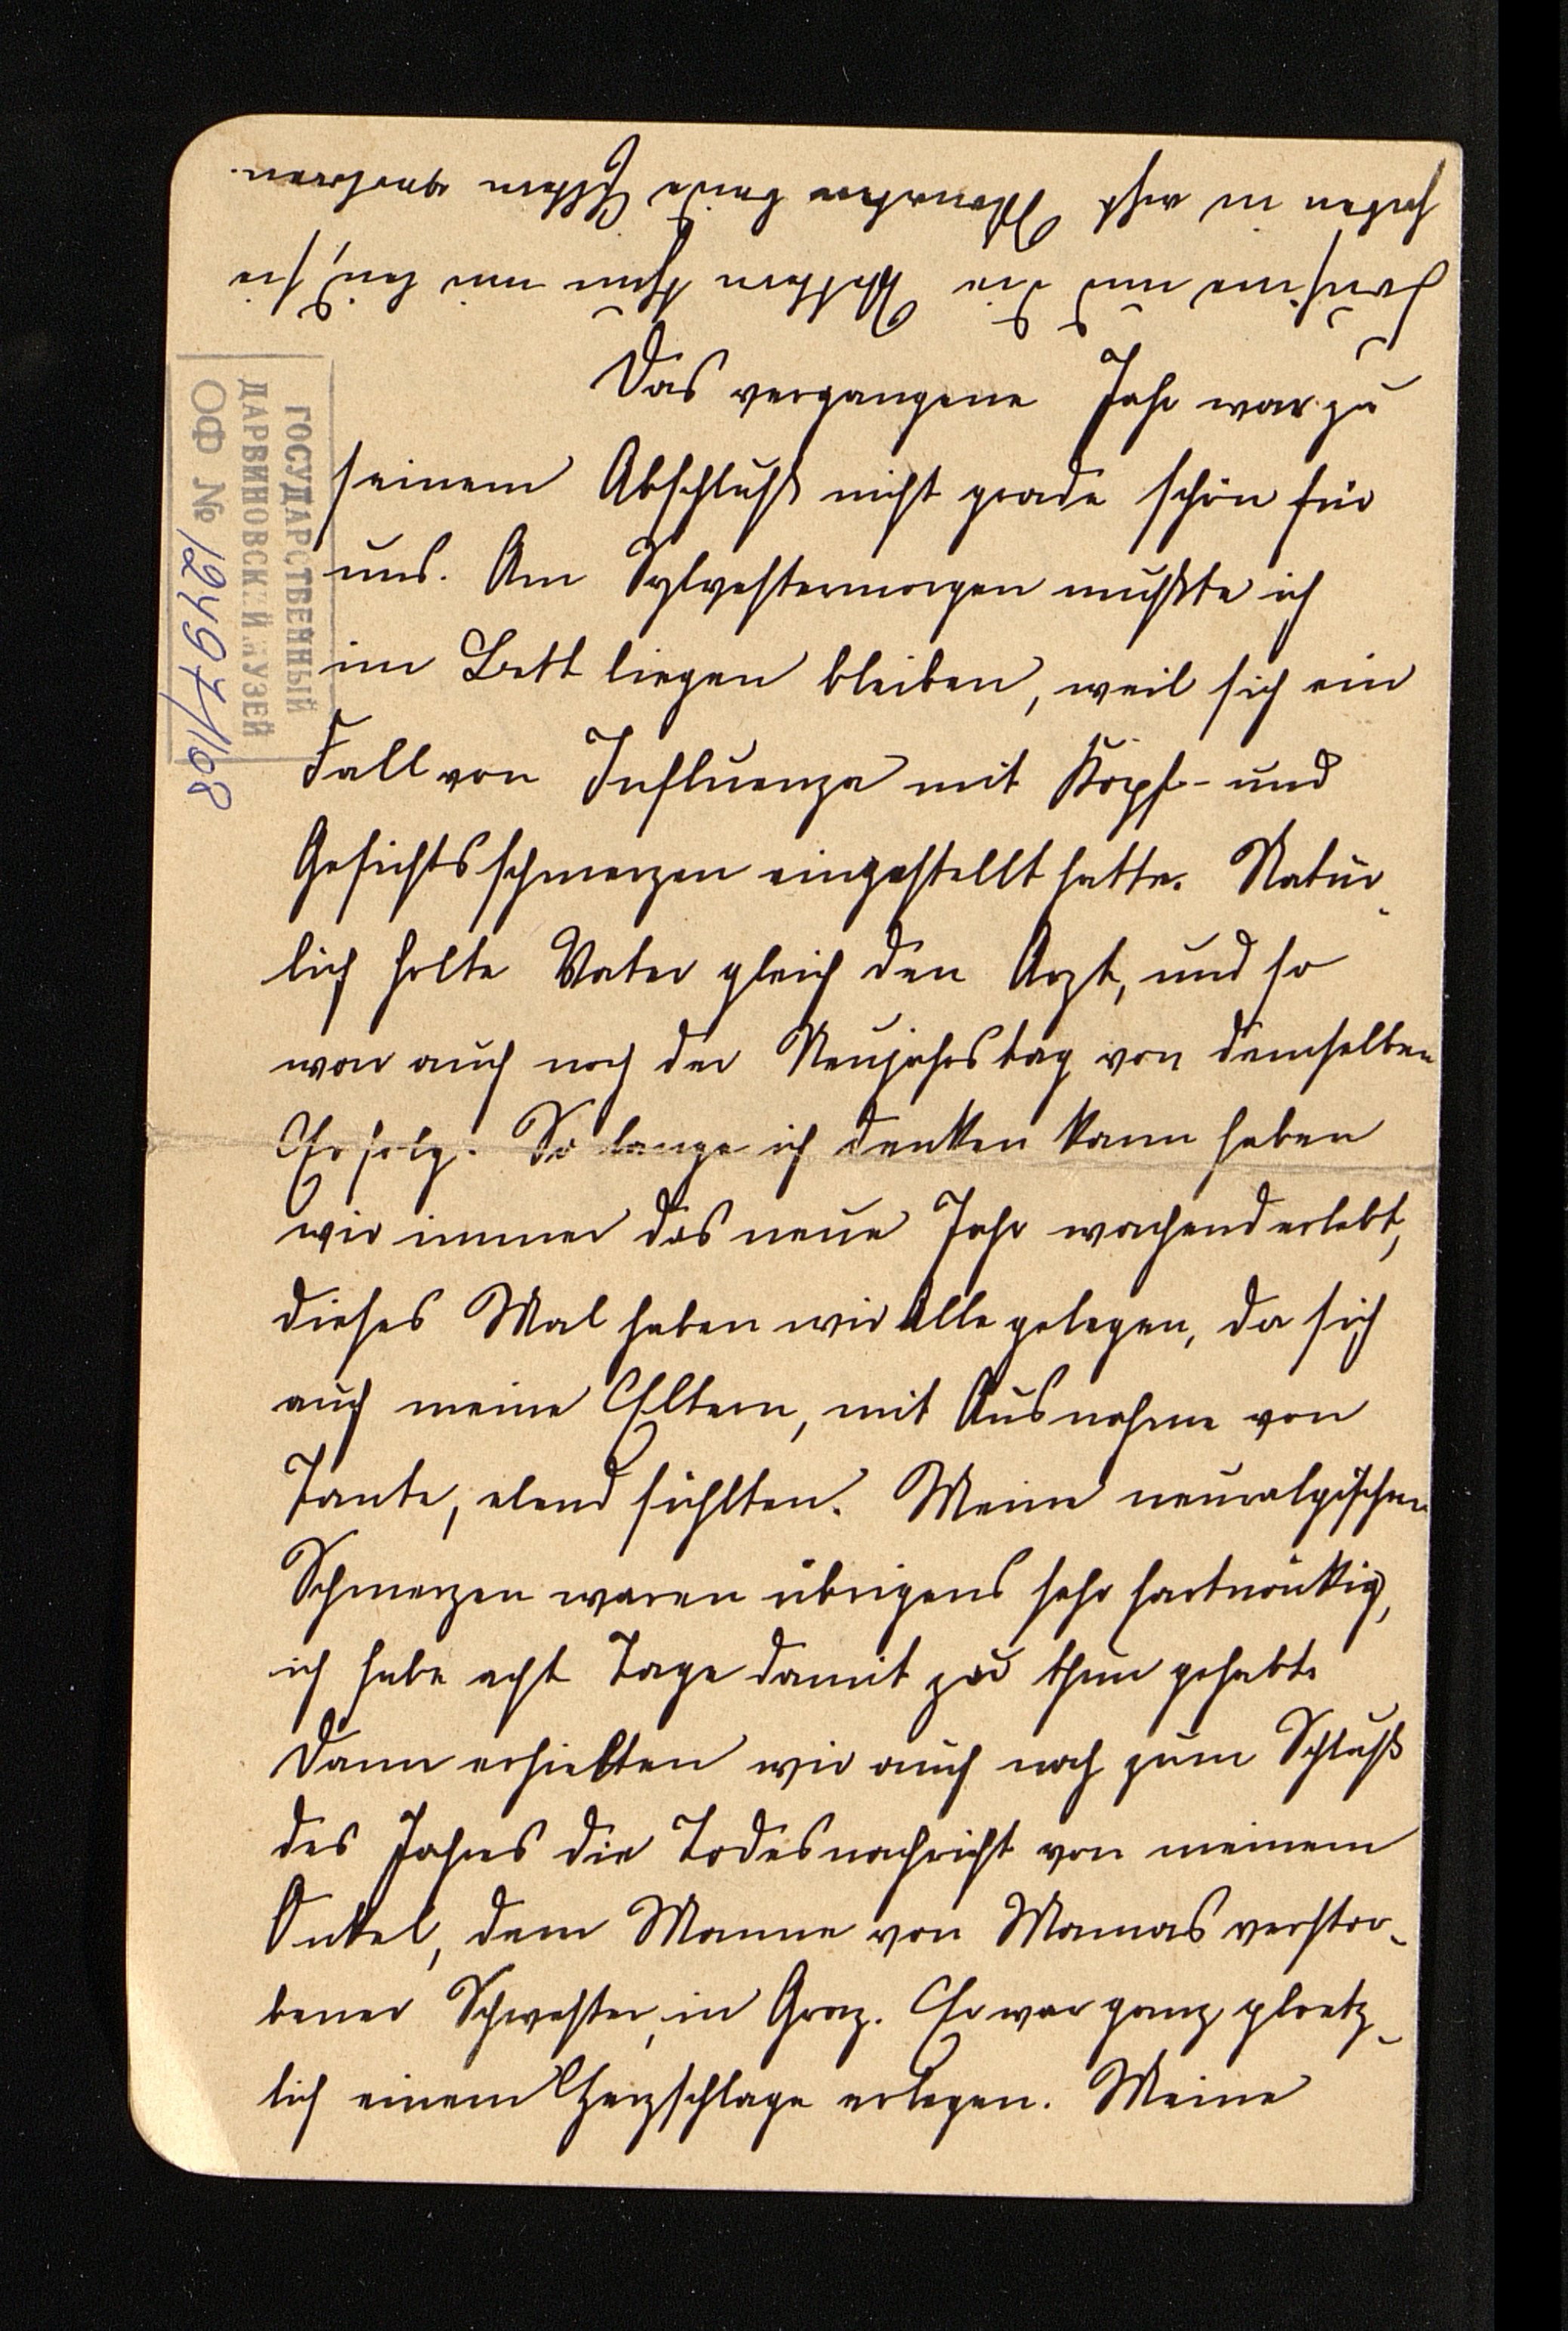 Das vergangene Jahr war zu
seinem Abschluß nicht grade schön für
uns. Am Sylvestermorgen mußte ich
im Bett liegen bleiben, weil sich ein
Fall von Influenza mit Kopf- und
Gesichtsschmerzen eingestellt hatte. Natür-
lich holte Vater gleich den Arzt, und so
war auch noch der Neujahrstag von demselben
Erfolg. So lange ich denken kann haben
wir immer das neue Jahr wachend erlebt,
dieses Mal haben wir Alle gelegen, da sich
auch meine Eltern, mit Ausnahme von
Tante, elend fühlten. Meine neuralgischen
Schmerzen waren übrigens sehr hartnäckig,
ich habe acht Tage damit zu thun gehabt.
Dann erhielten wir auch noch zum Schluß
des Jahres die Todesnachricht von meinem
Onkel, dem Manne von Mamas verstor-
bener Schwester, in Graz. Er war ganz ploetz-
lich einem Herzschlage erlegen. Meine
Cousine und die Vettern thun mir leid, sie
haben in acht Monaten beide Eltern verloren.
ГОСУДАРСТВЕННЫЙ
ДАРВИНОВСКИЙ МУЗЕЙ
ОФ № 12497/168